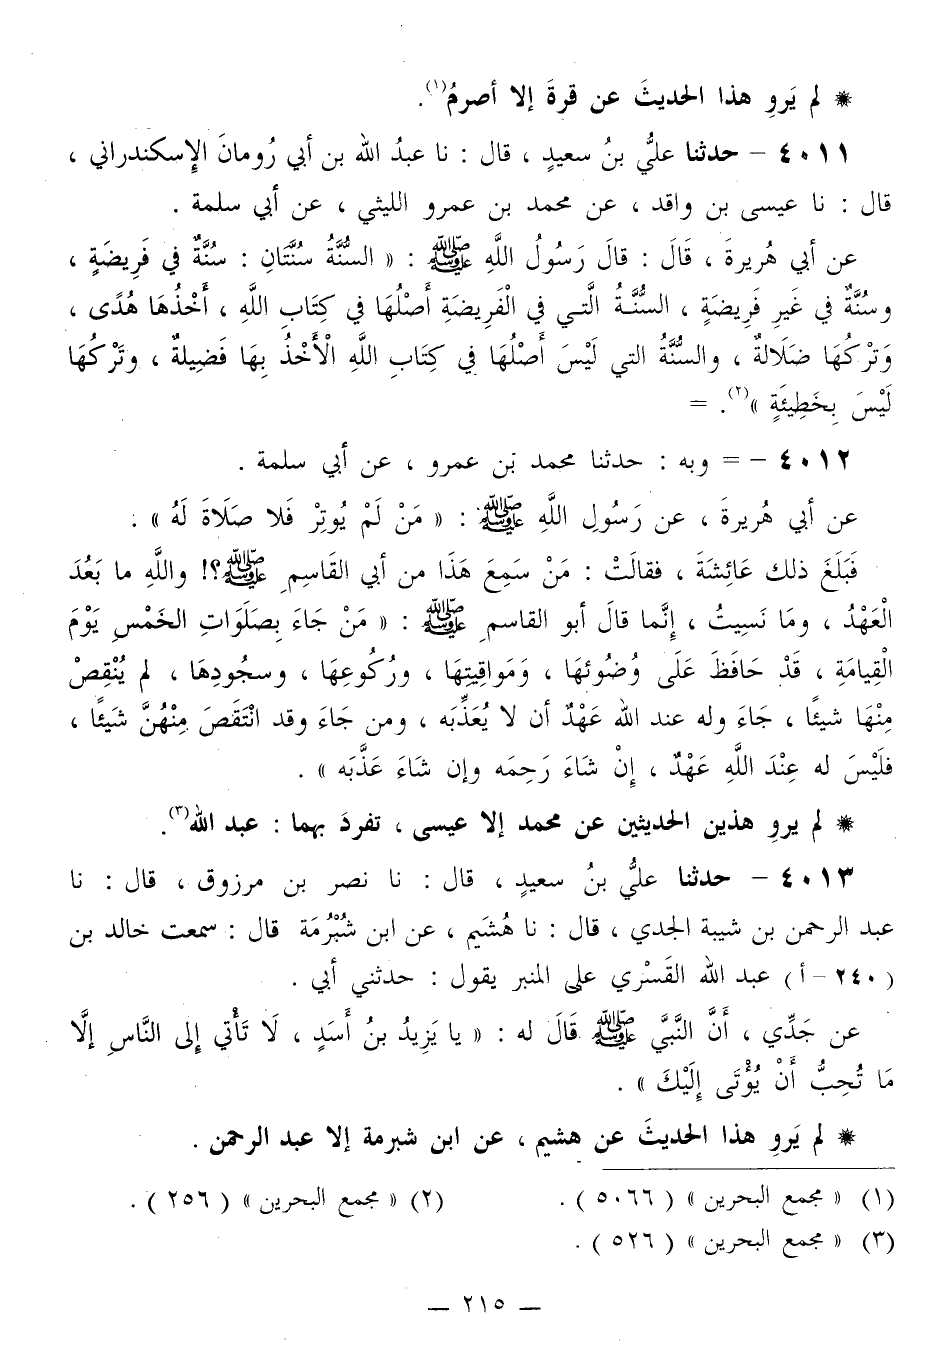 ✷ لم يَروِ هذا الحديثَ عن قرةَ إلا أصرمُ(١).
٤٠١١ – حدثنا عليُّ بنُ سعيدٍ ، قال : نا عبدُ الله بن أبي رُومانَ الإسكندراني ،
قال : نا عيسى بن واقد ، عن محمد بن عمرو الليثي ، عن أبي سلمة .
عن أبي هُريرةَ ، قَالَ : قالَ رَسُولُ اللَّهِ ﷺ : « السُّنَّةُ سُنَّتَانِ : سُنَّةٌ في فَرِيضَةٍ ،
وسُنَّةٌ في غَيرِ فَرِيضَةٍ ، السُّنَّةُ الَّتي في الْفَرِيضَةِ أَصْلُهَا في كِتَابِ اللَّهِ ، أَخْذُهَا هُدًى ،
وَتَرْكُهَا ضَلَالةٌ ، والسُّنَّةُ التي لَيْسَ أَصْلُهَا في كِتَابِ اللَّهِ الْأَخْذُ بِهَا فَضِيلةٌ ، وتَرْكُهَا
لَيْسَ بِخَطِيئَةٍ »(٢). =
٤٠١٢ – = وبه : حدثنا محمد بن عمرو ، عن أبي سلمة .
عن أبي هُريرةَ ، عن رَسُولِ اللَّهِ ﷺ : « مَنْ لَمْ يُوتِرْ فَلا صَلَاةَ لَهُ » .
فَبَلَغَ ذلك عَائِشَةَ ، فقالَتْ : مَنْ سَمِعَ هَذَا من أبي القَاسِمِ ﷺ؟! واللَّهِ ما بَعُدَ
الْعَهْدُ ، ومَا نَسِيتُ ، إِنَّما قالَ أبو القاسمِ ﷺ : « مَنْ جَاءَ بِصَلَوَاتِ الخَمْسِ يَوْمَ
الْقِيامَةِ ، قَدْ حَافَظَ عَلَى وُضُوئهَا ، وَمَواقِيتِهَا ، ورُكُوعِهَا ، وسجُودِهَا ، لم يُنْقِصْ
مِنْهَا شيئًا ، جَاءَ وله عند الله عَهْدٌ أن لا يُعَذِّبَه ، ومن جَاءَ وقد انْتَقَصَ مِنْهُنَّ شَيئًا ،
فلَيْسَ له عِنْدَ اللَّهِ عَهْدٌ ، إِنْ شَاءَ رَحِمَه وإن شَاءَ عَذَّبَه » .
✷ لم يروِ هذين الحديثين عن محمد إلا عيسى ، تفردَ بهما : عبد الله(٣).
٤٠١٣ – حدثنا عليُّ بنُ سعيدٍ ، قال : نا نصر بن مرزوق ، قال : نا
عبد الرحمن بن شيبة الجدي ، قال : نا هُشَيم ، عن ابن شُبْرُمَة قال : سمعت خالد بن
( ٢٤٠ – أ ) عبد الله القَسْري على المنبر يقول : حدثني أبي .
عن جَدِّي ، أَنَّ النَّبيَّ ﷺ قَالَ له : « يا يَزِيدُ بنُ أَسَدٍ ، لَا تَأْتي إِلى النَّاسِ إِلَّا
مَا تُحِبُّ أَنْ يُؤْتَى إِلَيْكَ » .
✷ لم يَروِ هذا الحديثَ عن هشيم ، عن ابن شبرمة إلا عبد الرحمن .
(١) « مجمع البحرين » ( ٥٠٦٦ ) . (٢) « مجمع البحرين » ( ٢٥٦ ) .
(٣) « مجمع البحرين » ( ٥٢٦ ) .
– ٢١٥ –